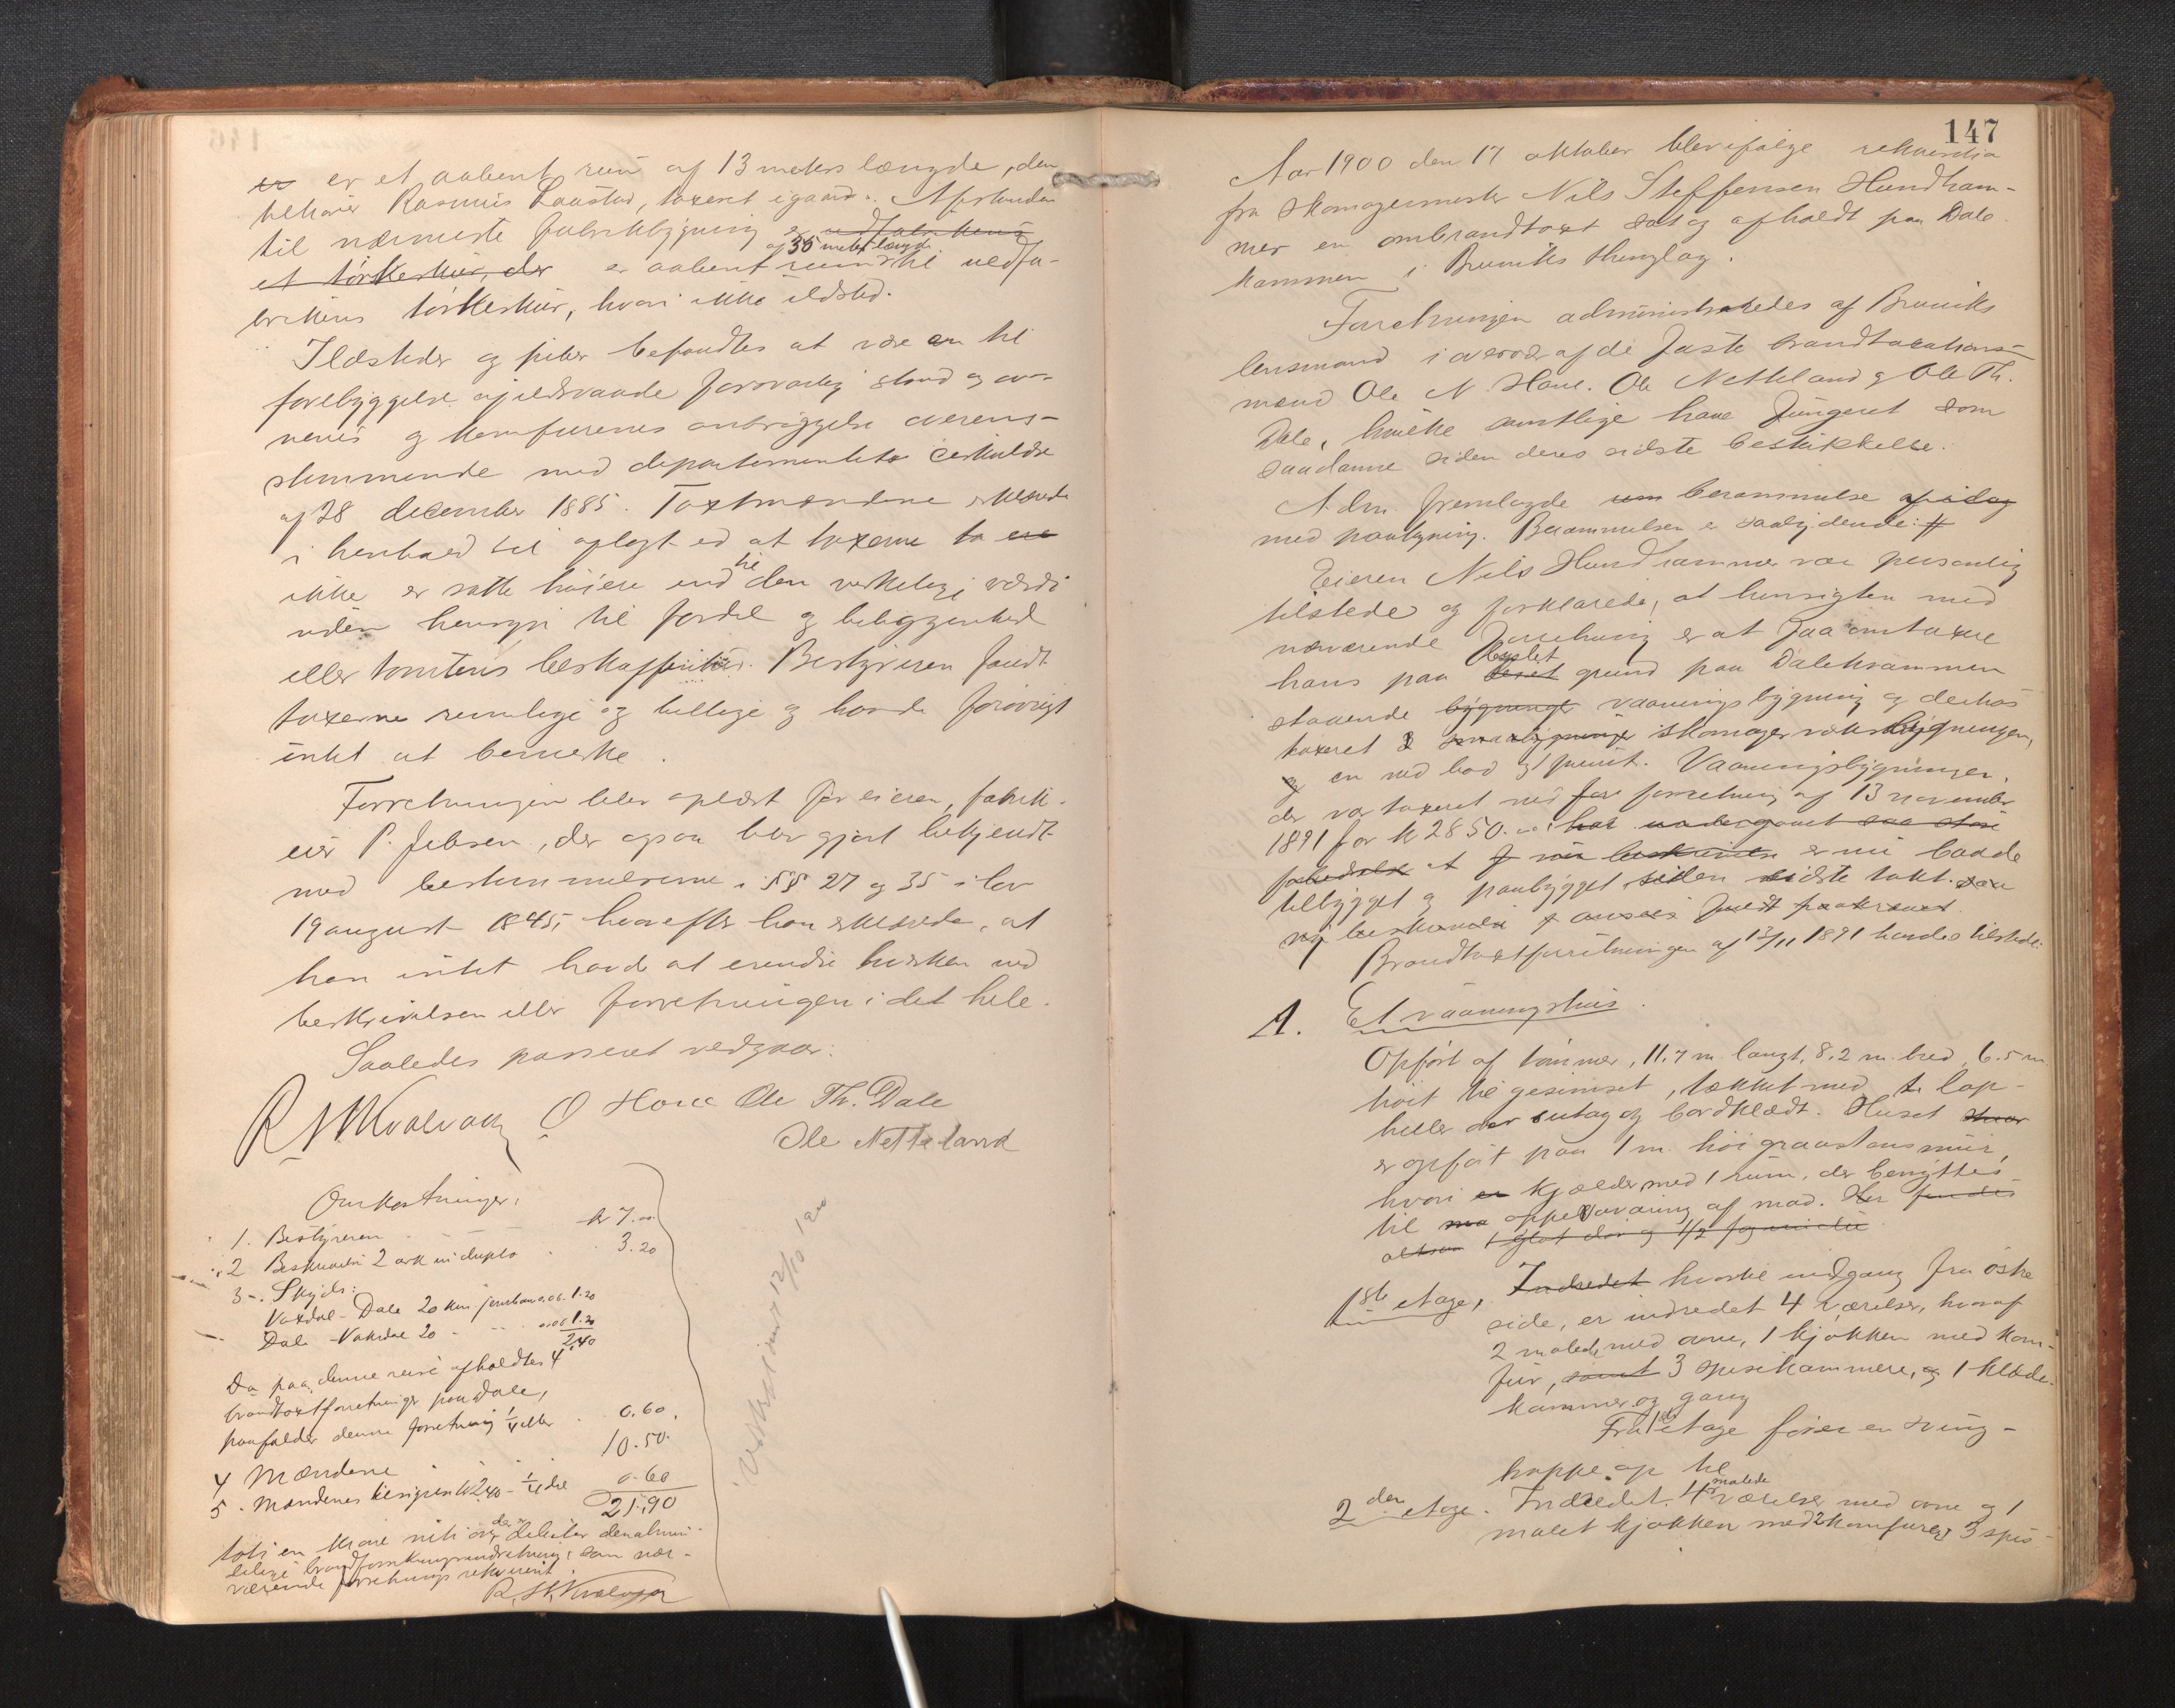 er er et aabent rum af 13 meters længde, den
tilhører Rasmus Laastad, taxeret igaar. Afstanden
til nærmeste fabrikbygning er vedfabrikens
af 35 meter længde
et törkeskur, der er aabent rum til vedfa-
brikens törkeskur, hvori ikke ildsted.
Ildsteder og piber befandtes at være en til
forebyggelse af ildsvaade forsvarlig stand og ov-
nenes og komfurenes anbringelse overens-
stemmende med departementets cirkulære
af 28 december 1885. Taxtmændene erklærede
i henhold til aflagt ed at taxerne to ere
ikke er satte høiere end til den virkelige værdi
uden hensyn til fordel og beliggenhed
eller tomtens beskaffenhed. Bestyreren fandt
taxerne rimelige og billige og havde forøvrigt
intet at bemerke.
Forretningen blev oplæst for eieren, fabrik-
eier P. Jebsen, der ogsaa blev gjort bekjendt
med bestemmelserne i §§ 27 og 35 i lov
19 august 1845, hvorefter han erklærede, at
han intet havde at erindre hverken ved
beskrivelsen eller forretningen i det hele.
Saaledes passeret vedgaar:
R N Kvalvaag O House Ole Th. Dale
Ole Netteland
Omkostninger:
1. Bestyreren kr 7.00
2 Beskrivelse 2 ark in duplo 3.20
3. Skyds:
Vaxdal - Dale 20 km. jernbane 1.20
Dale - Vaksdal 20 1.20
2.40
Da paa denne reise afholdtes 4
brandtaxtforretninger paa Dale,
paafalder denne forretning 1/4 eller 0.60
4 Mændene 10.50.
5. Mændenes 2.40 - 1/4 del 0.60
21,90
toti en krone niti øre der debiter den almin-
delige brandforsikringsindretning som nær-
værende forretnings rekvirent.
R. N. Kvalvaag
Ekspederet 12/10 1900
147
Aar 1900 den 17 oktober blev ifølge rekvisition
fra skomagermester Nils Steffensen Hundham-
mer en ombrandtaxt sat og afholdt paa Dale-
kammen i Bruviks thinglag.
Forretningen administreredes af Bruviks
lensmand i overvær af de faste brandtaxations-
mænd Ole N. House. Ole Nettland & Ole Th.
Dale, hvilke samtlige have fungeret som
saadanne siden deres sidste beskikkelse.
Adm. fremlagde sin berammelse af idag
med paategning. Berammelsen er saalydende: #
Eieren Nils Hundhammer var personlig
tilstede og forklarede, at hensigten med
nærværende forretning er at faa omtaxere
hans paa byslet grund paa Dalekvammen
staaende bygninger vaaningsbygning og derhos
taxeret 2 smaabygninger skomagerværkstedbygningen,
og en ved bod og privet. Vaaningsbygningen,
der var taxeret ved for forretning af 13 november
1891 for kr 2850.00 har undergaaet saa store
at er nu baade
tilbygget og paabygget, siden sidste takst. saa
ny beskrivelse ansees fuldt paakrævet.
Brandtaxtforretningen af 13/11 1891 havdes tilstede.
A. Et vaaningshus.
Opført af tømmer, 11.7 m. langt, 8.2 m. bred, 6.5 m.
høit til gesimset, tækket med lap-
heller over sutag og bordklædt. Huset
er opført paa 1 m. høi graastensmur,
hvori en kjælder med 1 rum, der benyttes
til opbevaring af mad. Her findes
1 glat dør og 1/2 fagvindue.
1ste etage, Indredet hvortil indgang fra østre
side, er indredet 4 værelser, hvoraf
2 malede, med ovne, 1 kjøkken med kom-
fur, samt 3 spisekammere, og 1 klæde-
kammer og gang
Fra 1ste etage fører en sving-
trappe op til
2den etage. Indredet 4 malede værelser med ovne og 1
malet kjøkken med 2 komfurer, 3 spis-